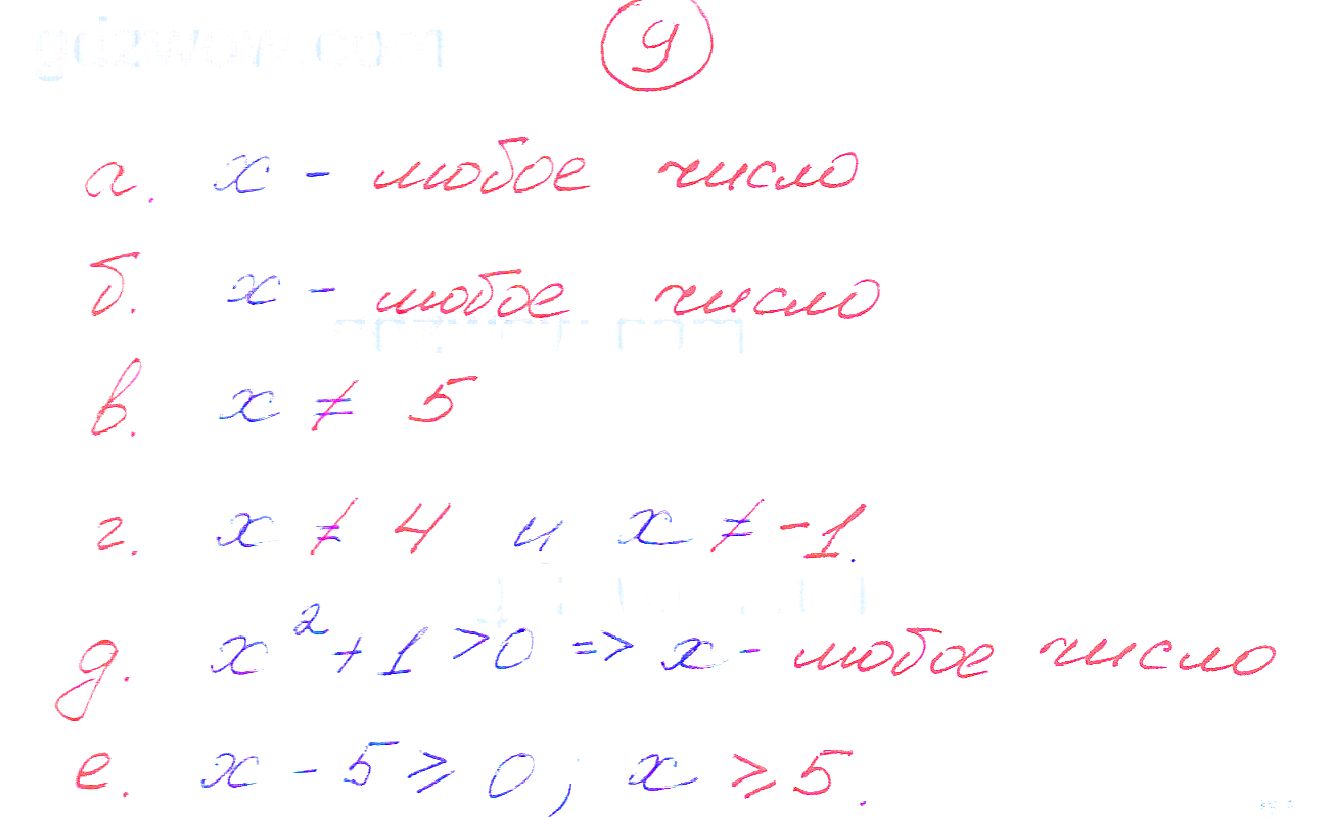 gdzwow.com
9
а. x - любое число
б. x - любое число
в. x ≠ 5
г. x ≠ 4 и x ≠ -1.
д. x² + 1 > 0 => x - любое число
е. x - 5 ⩾ 0; x ⩾ 5.